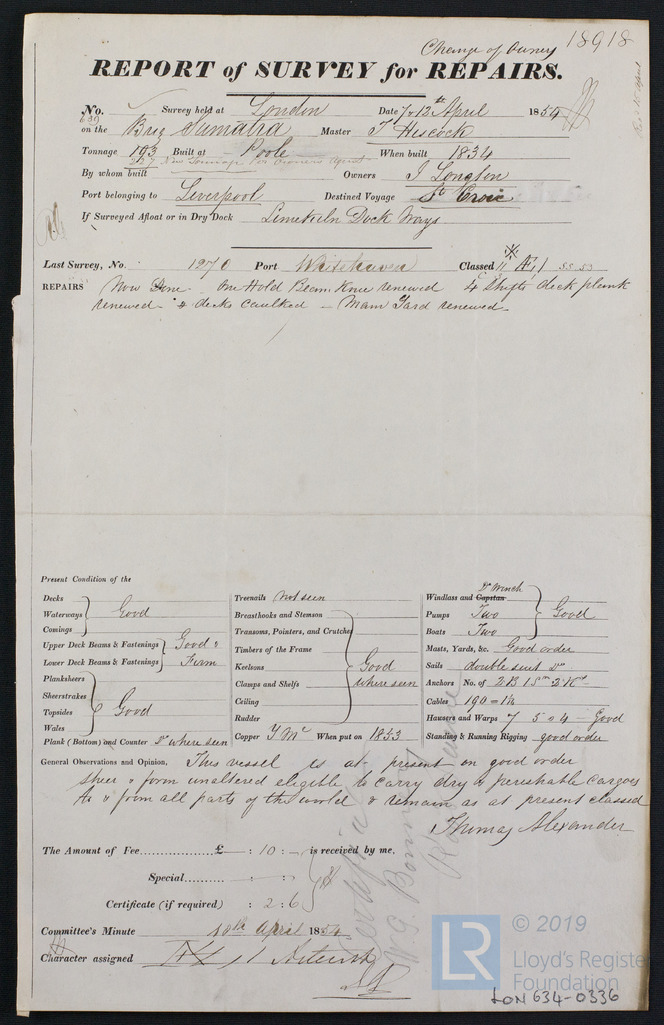 Change of Owners 18918
REPORT of SURVEY for REPAIRS.
No. Survey held at London Date 7, 12th April 1854
on the Brig Sumatra Master T Hiscock
Tonnage 193 Built at Poole When built 1834
227 New Tonnage Per Owners Agent
By whom built Owners J Longton
Port belonging to Liverpool Destined Voyage St Croix
If Surveyed Afloat or in Dry Dock Limekiln Dock Ways
Last Survey, No. 1276 Port Whitehaven Classed Æ 1 SS 53
REPAIRS Now Done - One Hold Beam Knee renewed 4 Shifts deck plank
renewed - & decks caulked - Main Yard renewed -
Present Condition of the
Decks
Waterways Good
Comings
Upper Deck Beams & Fastenings Good &
Lower Deck Beams & Fastenings Firm
Planksheers
Sheerstrakes
Topsides Good
Wales
Plank (Bottom) and Counter Do where seen
Treenails Not seen
Breasthooks and Stemson
Transoms, Pointers, and Crutches
Timbers of the Frame
Keelsons Good
Clamps and Shelfs where seen
Ceiling
Rudder
Copper Y Ml When put on 1853
Windlass and Capstan Do Winch
Pumps Two Good
Boats Two
Masts, Yards, &c. Good order
Sails double suit Do
Anchors No. of 2 B 1 Sm 2 Kds
Cables 190 = 1 1/4
Hausers and Warps 7 5 & 4 - Good
Standing & Running Rigging good order
General Observations and Opinion, This vessel is at present in good order
sheer & form unaltered eligible to carry dry & perishable cargoes
to & from all parts of the world & remain as at present classed
Thomas Alexander
The Amount of Fee £ : 10 : - is received by me.
Special : :
Certificate (if required) : 2 : 6
Committee's Minute 18th April 1854
Character assigned
© 2019
LR
Lloyd's Register
Foundation
LON 634-0336